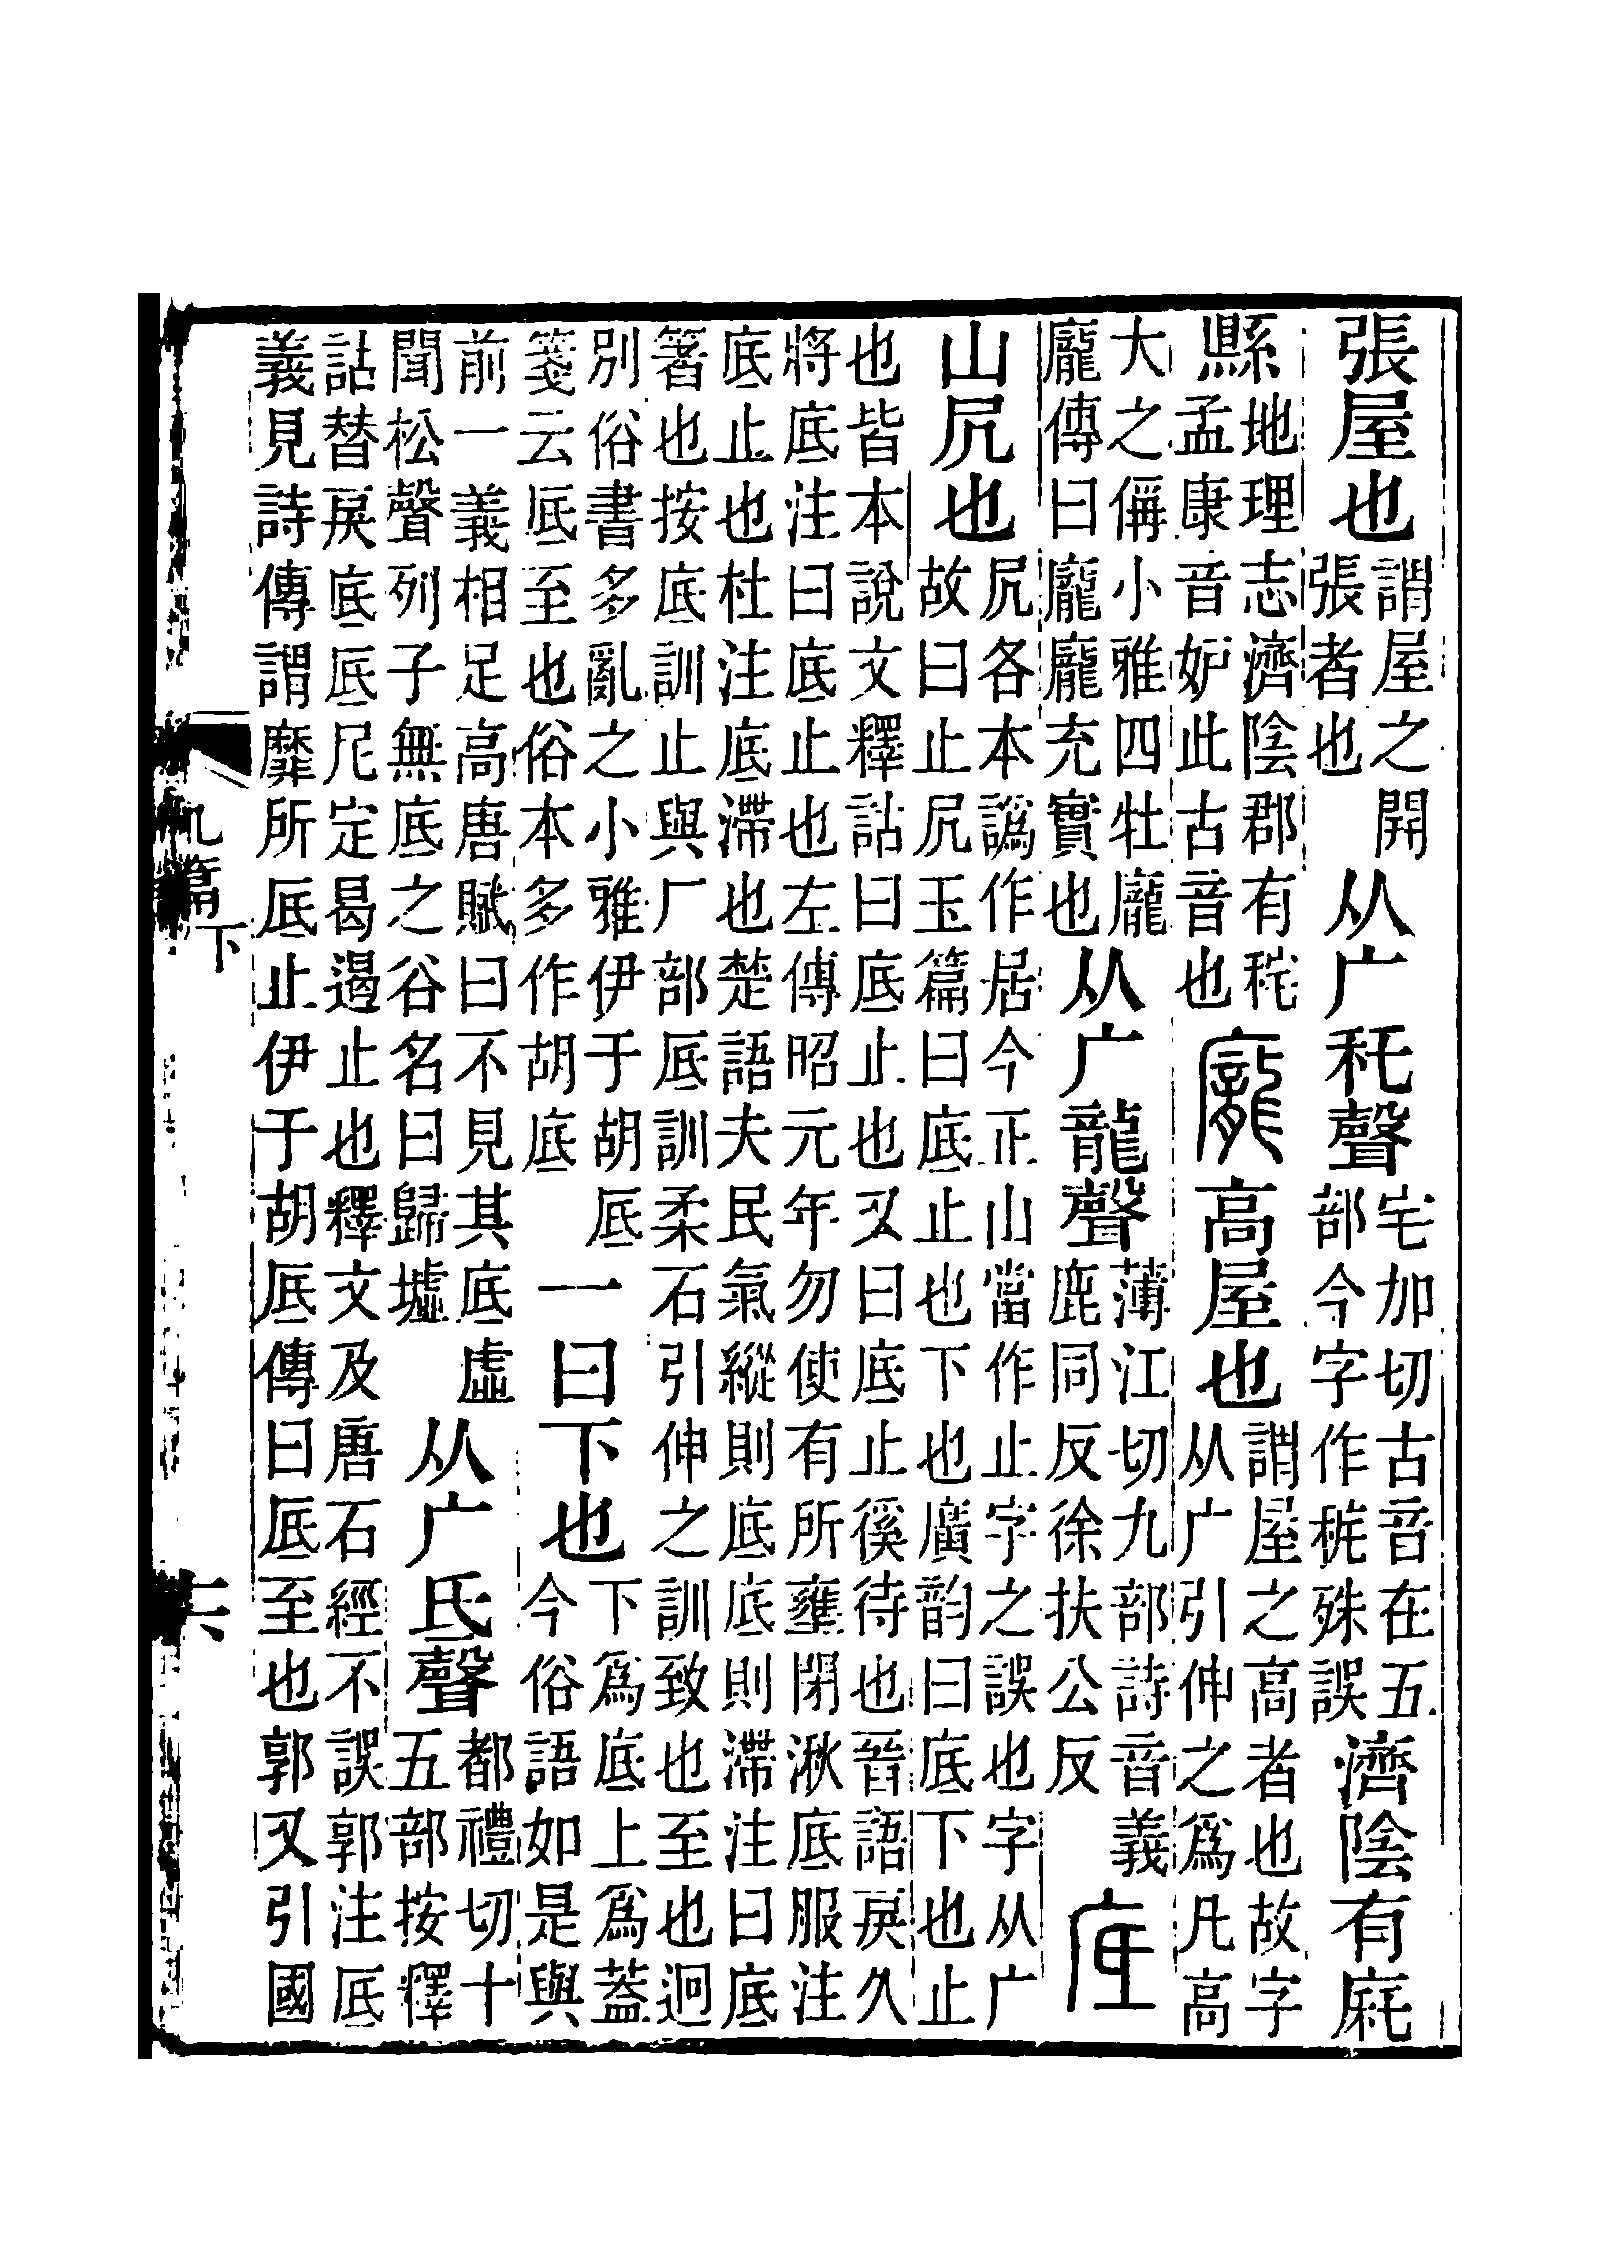 張屋也謂屋之開張者也从广秅聲宅加切古音在五部今字作㡯殊誤濟陰有㢉
縣地理志濟陰郡有秺孟康音妒此古音也龐高屋也謂屋之高者也故字从广引伸之爲凡高
大之偁小雅四牡龐龐傳曰龐龐充實也从广龍聲薄江切九部詩音義鹿同反徐扶公反底
山凥也凥各本譌作居今正山當作止字之誤也字从广故曰止凥玉篇曰底止也下也廣韵曰底下也止
也皆本說文釋詁曰底止也又曰底止徯待也晉語戾久
將底注曰底止也左傳昭元年勿使有所壅閉湫底服注
底止也杜注底滯也楚語夫民氣縱則底底則滯注曰底
箸也按底訓止與厂部厎訓柔石引伸之訓致也至也迥
別俗書多亂之小雅伊于胡厎箋云厎至也俗本多作胡底一曰下也下爲底上爲蓋今俗語如是與
前一義相足高唐賦曰不見其底虛聞松聲列子無底之谷名曰歸墟从广氐聲都禮切十五部按釋
詁替戾底厎尼定曷遏止也釋文及唐石經不誤郭注厎
義見詩傳謂靡所厎止伊于胡厎傳曰厎至也郭又引國
九篇下